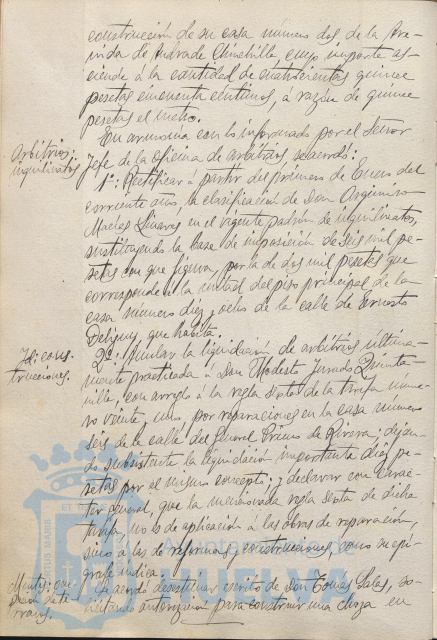 construcción de su casa número dos de la Ave-
nida de Andrade Chinchilla, cuyo importe as-
ciende á la cantidad de cuatrocientas quince
pesetas cincuenta céntimos, á razón de quince
pesetas el metro.
En armonía con lo informado por el Señor
Arbitrios:
inquilinatos
Jefe de la Oficina de arbitrios, se acordó:
1º: Rectificar á partir del primero de Enero del
corriente año, la clasificación de Don Argimiro
Macías Linares en el vigente padrón de inquilinatos,
sustituyendo la base de imposición de seis mil pe-
setas con que figura, por la de dos mil pesetas que
corresponde a la mitad del piso principal de la
casa número diez y ocho de la calle de Ernesto
Deligny, que habita.
Id: cons-
trucciones.
2º: Anular la liquidación de arbitrios última-
mente practicada á Don Modesto Jurado Quinta-
nilla, con arreglo á la regla sexta de la tarifa núme-
ro veinte y uno, por reparaciones en la casa número
seis de la calle del General Primo de Rivera; dejan-
do subsistente la liquidación importante diez pe-
setas por el mismo concepto; y declarar con carác-
ter general, que la mencionada regla sexta de dicha
tarifa, no es de aplicación á las obras de reparación,
sino á las de reformas y construcciones, como su epí-
grafe indica.
Se acordó desestimar escrito de Don Tomás Sales, so-
licitando autorización para construir una choza en
Ayuntamiento de
HUELVA